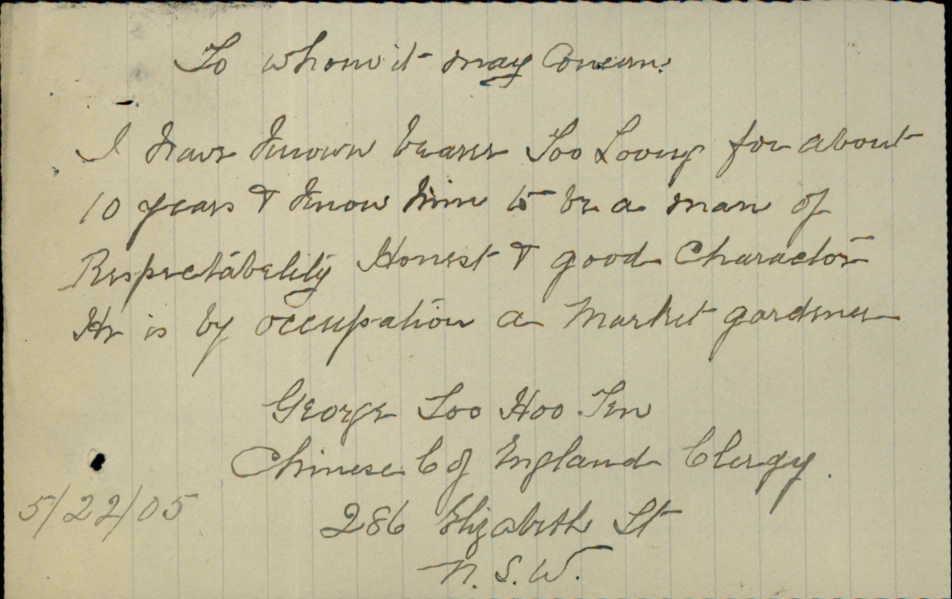 To whom it may Concern.
I have known bearer Too Looey for about
10 years & know him to be a man of
Respectabelity Honest & good Character
He is by occupation a Market gardener
George Soo Hoo Ten
Chinese C of England Clergy.
5/22/05
286 Elizabeth St
N.S.W.